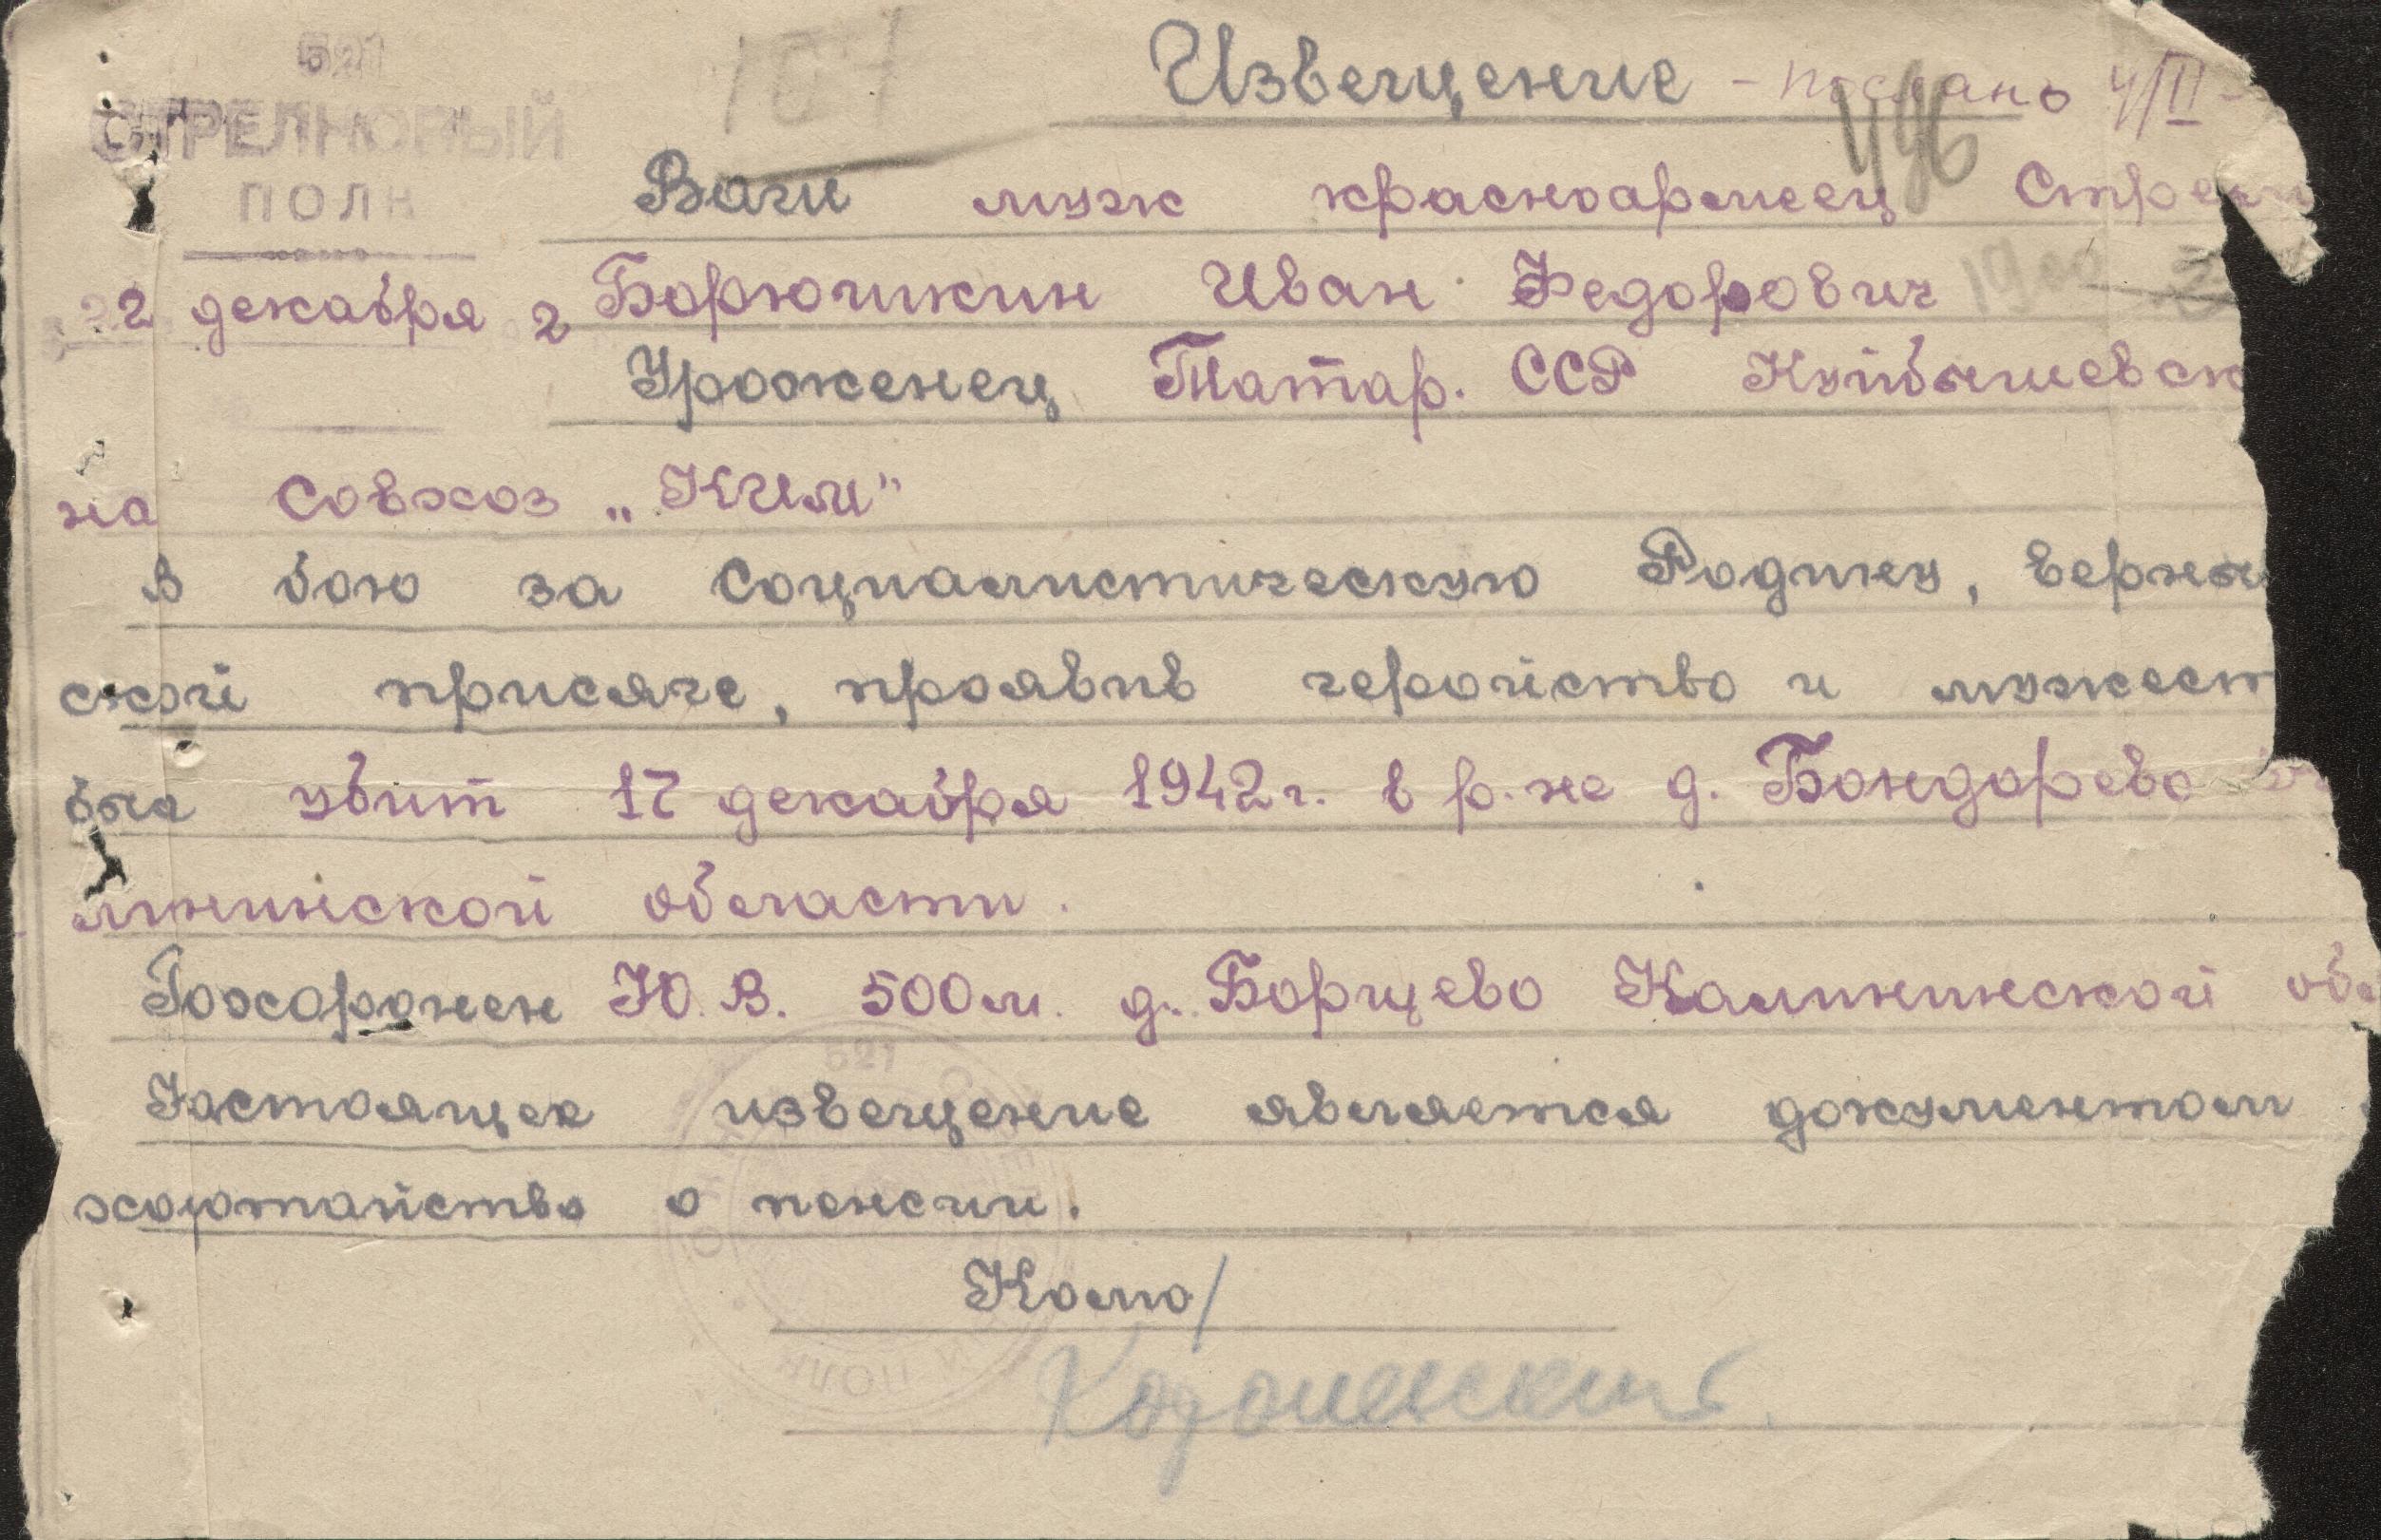 521
СТРЕЛКОВЫЙ
ПОЛК
107
Извещение - послано 4/II
496
Ваш муж красноармеец Стрел
22 декабря 2 Борюшкин Иван Федорович 1900
Уроженец Татар. ССР Куйбышевск
на совхоз „Ким"
В бою за Социалистическую Родину, верны
ской присяге, проявив геройство и мужест
был убит 17 декабря 1942 г. в р-не д. Бондарево
лининской области.
Похоронен Ю.В. 500 м. д. Борщево Калининской об
Настоящее извещение является документом
хотайство о пенсии.
Кома/
521
ПОЛК